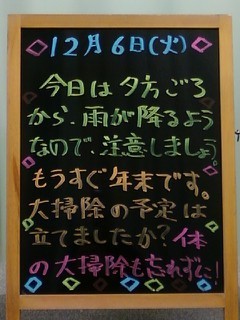 12月6日(火)
今日は夕方ごろ
から、雨が降るよう
なので、注意しましょう。
もうすぐ年末です。
大掃除の予定は
立てましたか?体
の大掃除も忘れずに!